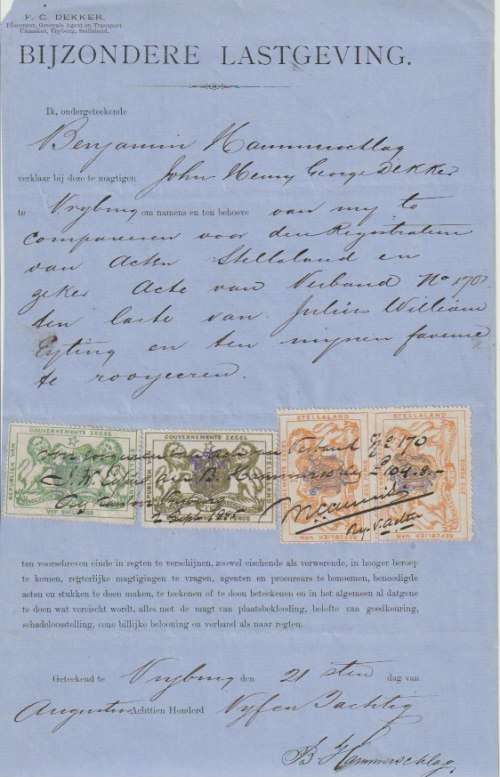 F. C. DEKKER,
Vryburg, Stellaland.
BIJZONDERE LASTGEVING.
Ik, ondergeteekende
Benjamin Hammerschlag
verklaar bij deze te magtigen John Henry George Dekker
te Vryburg om namens en ten behoeve van my te
compareeren voor den Registrateur
van Acten Stellaland en
Acte van Verband No 170
ten laste van Julius William
Eyting en ten mijnen faveure
te rooyeeren.
GOUVERNEMENTS ZEGEL GOUVERNEMENTS ZEGEL STELLALAND STELLALAND
REPUBLIEK VAN
Verband No 170
J. W. B. Hammerschlag £104.8.—
Sept. 1885
ten voorschreven einde in regten te verschijnen, zoowel eischende als verwerende, in hooger beroep
te komen, regterlijke magtigingen te vragen, agenten en procureurs te benoemen, benoodigde
acten en stukken te doen maken, te teekenen of te doen beteekenen en in het algemeen al datgene
te doen wat vereischt wordt, alles met de magt van plaatsbekleeding, belofte van goedkeuring,
schadeloosstelling, eene billijke belooning en verband als naar regten.
Geteekend te Vryburg den 21 sten dag van
Augustus Achttien Honderd Vyf en Tachtig
B. Hammerschlag